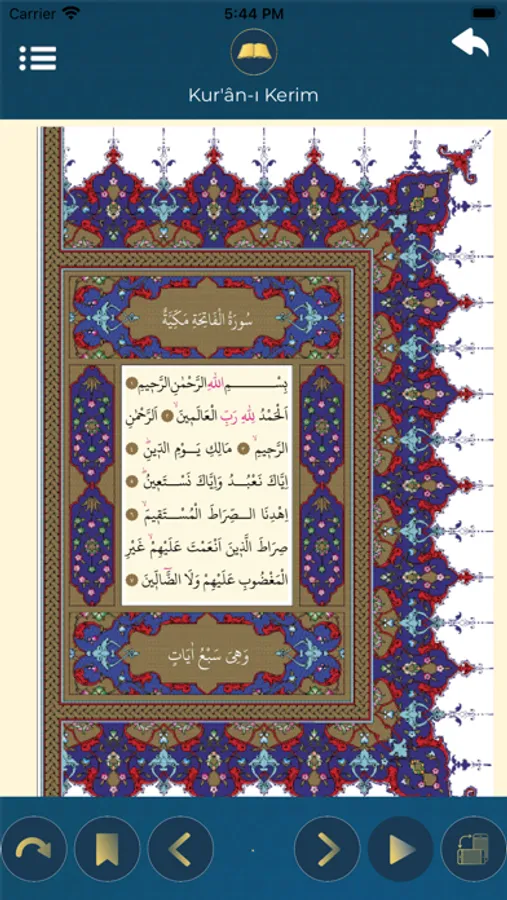 Carrier 5:44 PM
Kur'ân-ı Kerim
سُورَةُ الْفَاتِحَةِ مَكِّيَّةٌ
بِسْــــمِ اللهِ الرَّحْمٰنِ الرَّحٖيمِ ١
اَلْحَمْدُ لِلّٰهِ رَبِّ الْعَالَمٖينَۙ ٢ اَلرَّحْمٰنِ
الرَّحٖيمِۙ ٣ مَالِكِ يَوْمِ الدّٖينِؕ ٤
اِيَّاكَ نَعْبُدُ وَاِيَّاكَ نَسْتَعٖينُؕ ٥
اِهْدِنَا الصِّرَاطَ الْمُسْتَقٖيمَۙ ٦
صِرَاطَ الَّذٖينَ اَنْعَمْتَ عَلَيْهِمْۙ غَيْرِ
الْمَغْضُوبِ عَلَيْهِمْ وَلَا الضَّٓالّٖينَ ٧
وَهِىَ سَبْعُ اٰيَاتٍ